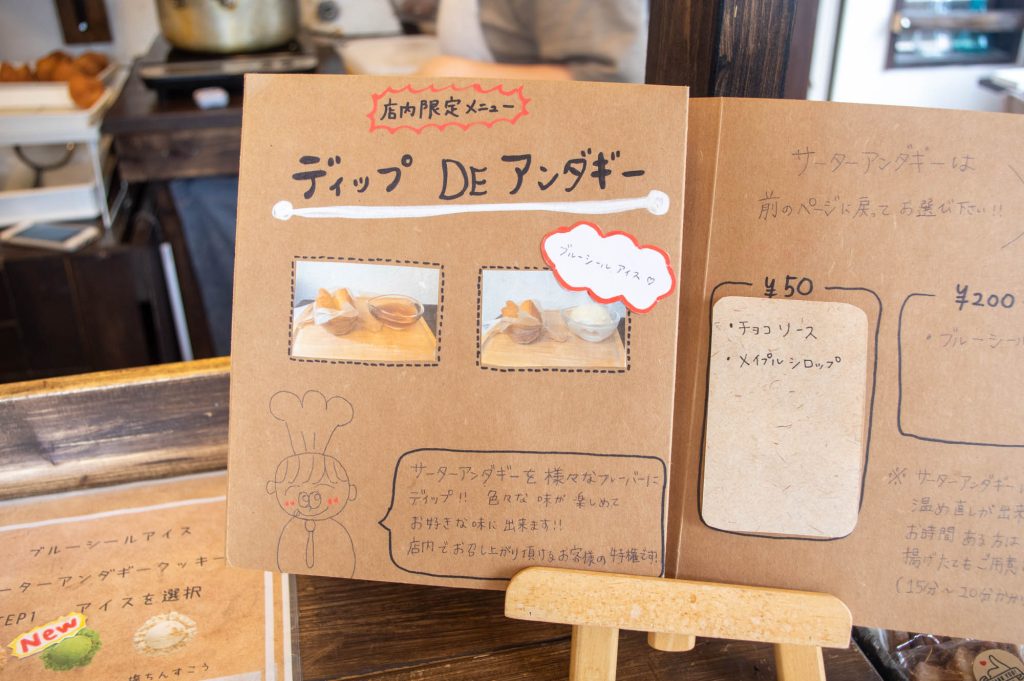 店内限定メニュー
ディップ DE アンダギー
ブルーシール アイス♡
サーターアンダギーを 様々なフレーバーに
ディップ!! 色々な味が楽しめて
お好きな味に出来ます!!
店内でお召し上がり頂けるお客様の特権です!
サーターアンダギーは
前のページに戻って お選び下さい!!
¥50
・チョコ ソース
・メイプル シロップ
¥200
・ブルーシール
※ サーターアンダギー
温め直しが出来
お時間ある方は
揚げたてもご用意
(15分~20分かか
ブルーシールアイス
ーターアンダギークッキー
TEP1 アイスを選択
New
塩ちんすこう